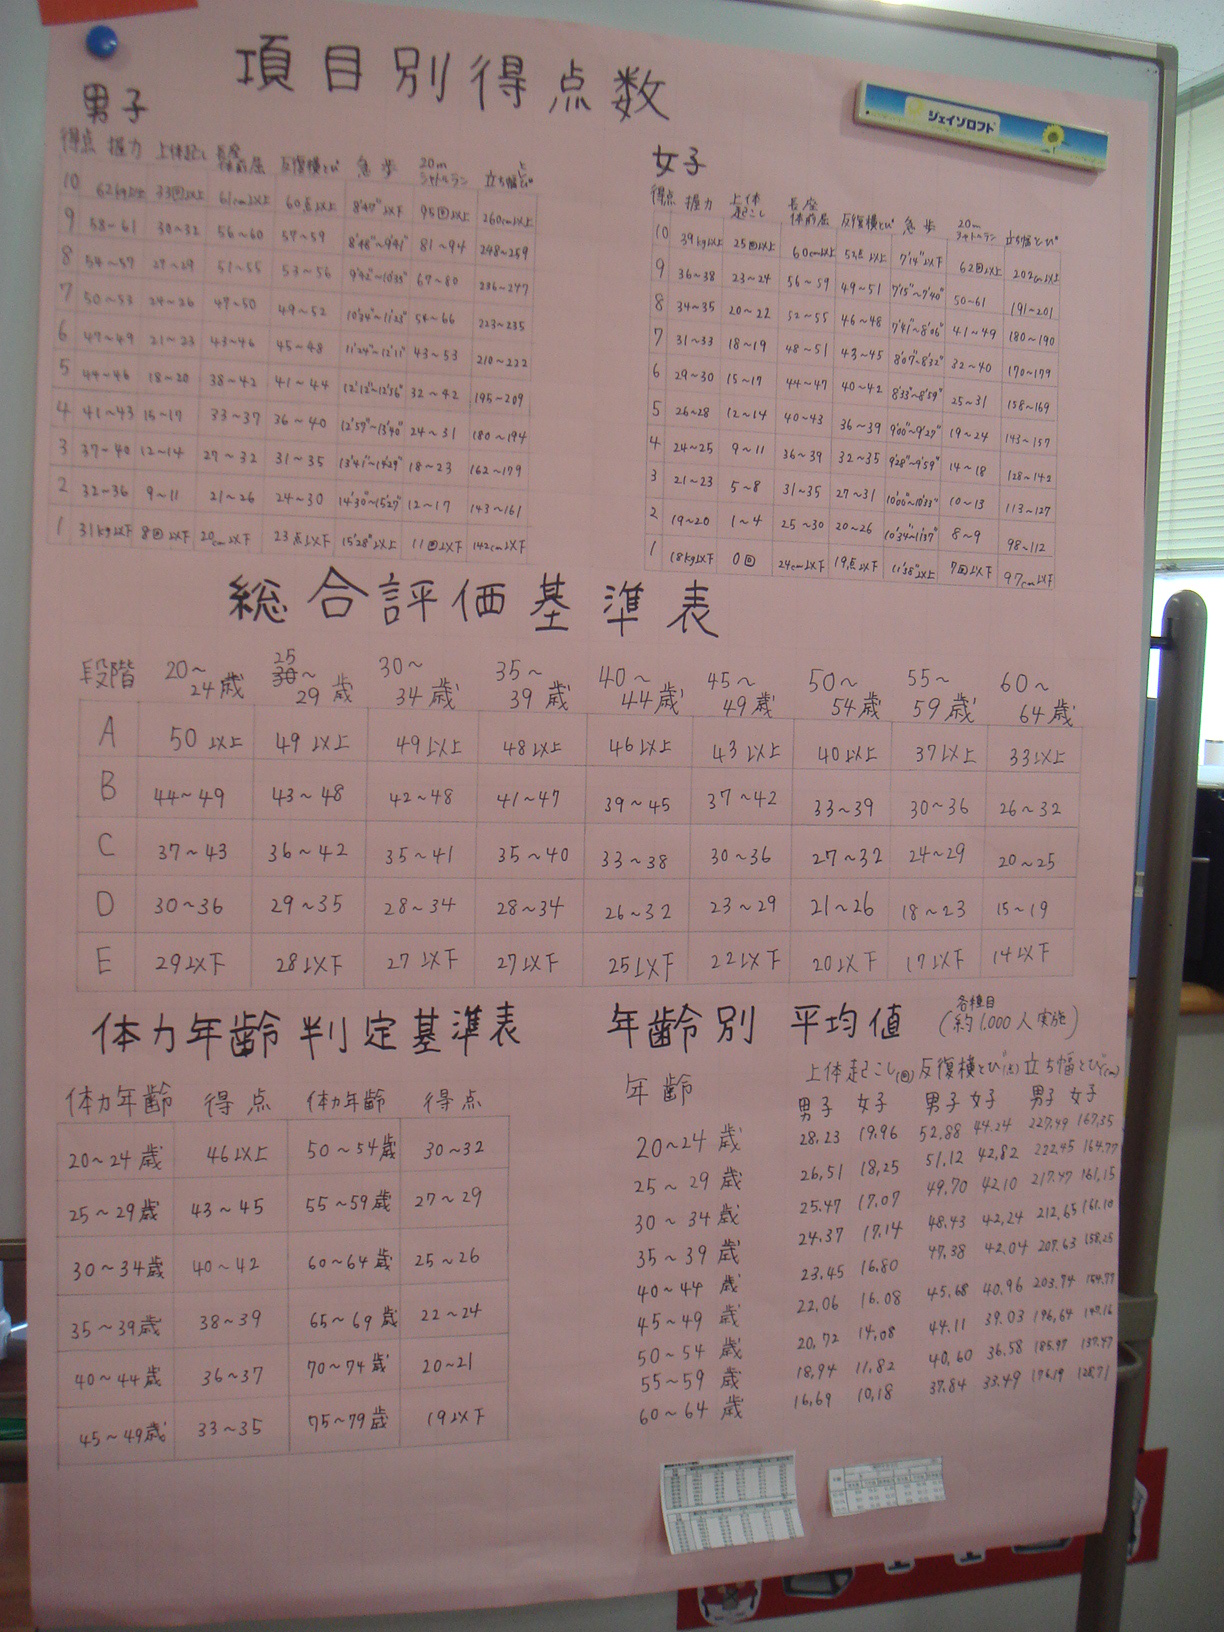 項目別得点数
ジェイゾロフト
男子
得点 握力 上体起こし 長座体前屈 反復横とび 急歩 20mシャトルラン 立ち幅とび
10 62kg以上 33回以上 61cm以上 60点以上 8'47"以下 95回以上 260cm以上
9 58~61 30~32 56~60 57~59 8'48"~9'41" 81~94 248~259
8 54~57 27~29 51~55 53~56 9'42"~10'33" 67~80 236~247
7 50~53 24~26 47~50 49~52 10'34"~11'23" 54~66 223~235
6 47~49 21~23 43~46 45~48 11'24"~12'11" 43~53 210~222
5 44~46 18~20 38~42 41~44 12'12"~12'56" 32~42 195~209
4 41~43 15~17 33~37 36~40 12'57"~13'40" 24~31 180~194
3 37~40 12~14 27~32 31~35 13'41"~14'29" 18~23 162~179
2 32~36 9~11 21~26 24~30 14'30"~15'27" 12~17 143~161
1 31kg以下 8回以下 20cm以下 23点以下 15'28"以上 11回以下 142cm以下
女子
得点 握力 上体起こし 長座体前屈 反復横とび 急歩 20mシャトルラン 立ち幅とび
10 39kg以上 25回以上 60cm以上 52点以上 7'14"以下 62回以上 202cm以上
9 36~38 23~24 56~59 49~51 7'15"~7'40" 50~61 191~201
8 34~35 20~22 52~55 46~48 7'41"~8'06" 41~49 180~190
7 31~33 18~19 48~51 43~45 8'07"~8'32" 32~40 170~179
6 29~30 15~17 44~47 40~42 8'33"~8'59" 25~31 158~169
5 26~28 12~14 40~43 36~39 9'00"~9'27" 19~24 143~157
4 24~25 9~11 36~39 32~35 9'28"~9'59" 14~18 128~142
3 21~23 5~8 31~35 27~31 10'00"~10'33" 10~13 113~127
2 19~20 1~4 25~30 20~26 10'34"~11'37" 8~9 98~112
1 18kg以下 0回 24cm以下 19点以下 11'38"以上 7回以下 97cm以下
総合評価基準表
段階 20~24歳 25~29歳 30~34歳 35~39歳 40~44歳 45~49歳 50~54歳 55~59歳 60~64歳
A 50以上 49以上 49以上 48以上 46以上 43以上 40以上 37以上 33以上
B 44~49 43~48 42~48 41~47 39~45 37~42 33~39 30~36 26~32
C 37~43 36~42 35~41 35~40 33~38 30~36 27~32 24~29 20~25
D 30~36 29~35 28~34 28~34 26~32 23~29 21~26 18~23 15~19
E 29以下 28以下 27以下 27以下 25以下 22以下 20以下 17以下 14以下
体力年齢判定基準表
体力年齢 得点 体力年齢 得点
20~24歳 46以上 50~54歳 30~32
25~29歳 43~45 55~59歳 27~29
30~34歳 40~42 60~64歳 25~26
35~39歳 38~39 65~69歳 22~24
40~44歳 36~37 70~74歳 20~21
45~49歳 33~35 75~79歳 19以下
年齢別 平均値 (各種目約1,000人実施)
年齢 上体起こし(回) 反復横とび(点) 立ち幅とび(cm)
男子 女子 男子 女子 男子 女子
20~24歳 28.23 19.96 52.88 44.24 227.49 167.35
25~29歳 26.51 18.25 51.12 42.82 222.45 164.77
30~34歳 25.47 17.07 49.70 42.10 217.47 161.15
35~39歳 24.37 17.14 48.43 42.24 212.65 161.10
40~44歳 23.45 16.80 47.38 42.04 207.63 158.25
45~49歳 22.06 16.08 45.68 40.96 203.74 154.77
50~54歳 20.72 14.08 44.11 39.03 196.64 147.16
55~59歳 18.94 11.82 40.60 36.58 185.97 137.47
60~64歳 16.69 10.18 37.84 33.49 176.19 128.71